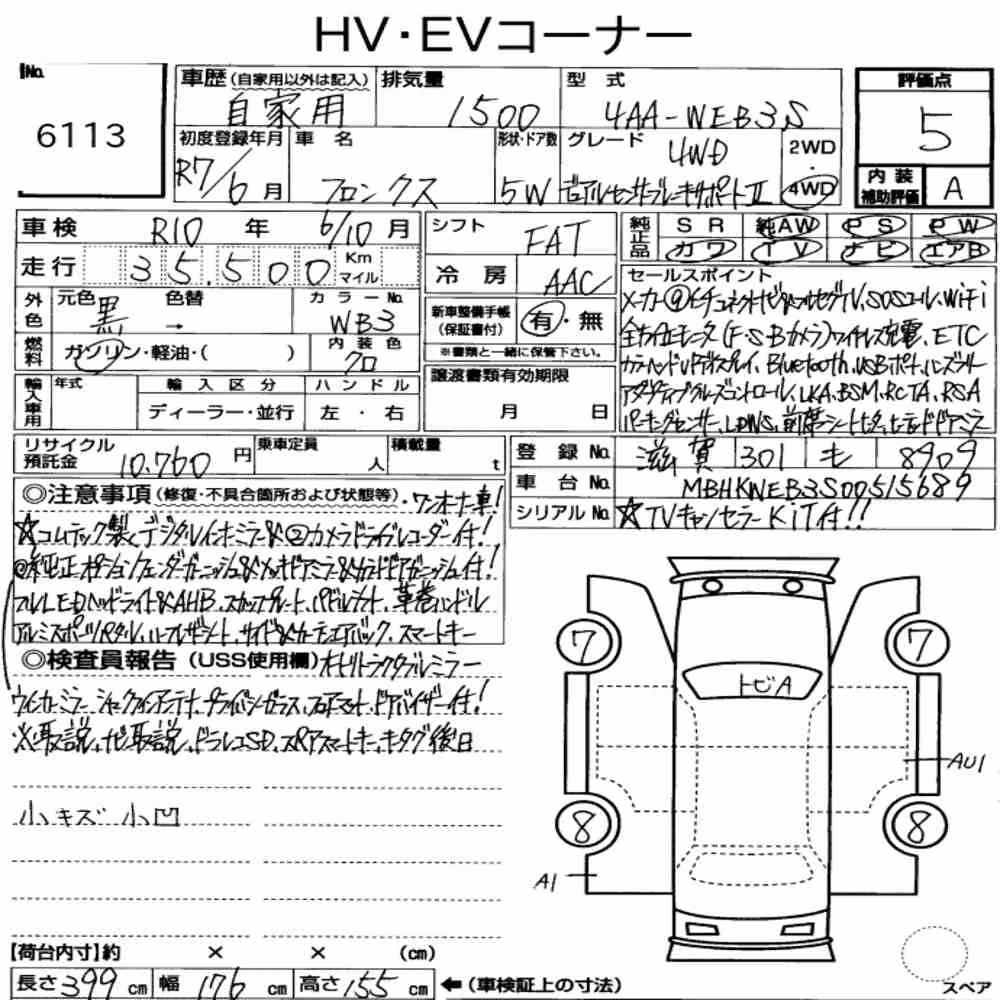 HV・EVコーナー
No. 6113
車歴 (自家用以外は記入) 自家用
排気量 1500
型式 4AA-WEB3S
評価点 5
初度登録年月 R7/6月
車名 フロンクス
形状・ドア数 5W
グレード 4WD
デュアルセンサーブレーキサポートⅡ
2WD・4WD
内装補助評価 A
車検 R10年 6/10月
シフト FAT
純正品 SR 純AW PS PW
カワ TV ナビ エアB
走行 35,500 Km マイル
冷房 AAC
セールスポイント
メーカー⑨インチコネクトナビ&フルセグTV、SOSコール、WiFi
外色 元色 黒 色替 → カラーNo. WB3
新車整備手帳(保証書付) 有・無
※書類と一緒に保管下さい。
全方位モニター(F・S・Bカメラ)ワイヤレス充電、ETC
燃料 ガソリン・軽油・( ) 内装色 クロ
カラーヘッドUPディスプレイ、Bluetooth、USBポート、ハンズフリー
輸入車用 年式 輸入区分 ハンドル
ディーラー・並行 左・右
譲渡書類有効期限
月 日
アダプティブクルーズコントロール、LKA、BSM、RCTA、RSA
パーキングセンサー、LDWS、前席シートヒーター、ヒーテッドドアミラー
リサイクル預託金 10,760円
乗車定員 人
積載量 t
登録No. 滋賀 301 も 8909
車台No. MBHKWEB3S00515689
シリアルNo. ☆TVキャンセラーKiT付!!
◎注意事項(修復・不具合箇所および状態等)・ワンオーナー車!
☆コムテック製デジタルインナーミラー&②カメラドライブレコーダー付!
◎純正オプションフェンダーガーニッシュ&メッキドアミラー&カラードドアガーニッシュ付!
フルLEDヘッドライト&AHB、スカッフプレート、パドルシフト、革巻ハンドル
アルミスポーツペダル、ハーフレザーシート、サイド&カーテンエアバック、スマートキー
◎検査員報告(USS使用欄)オートリトラクタブルミラー
ウインカーミラー、シャークフィンアンテナ、プライバシーガラス、フロアマット、ドアバイザー付!
※取説、ナビ取説、ドラレコSD、スペアスマートキー、キータグ後日
小キズ 小凹
7 7
トビA
AU1
8 8
A1
【荷台内寸】約 × × (cm)
長さ399cm 幅176cm 高さ155cm ←(車検証上の寸法)
スペア